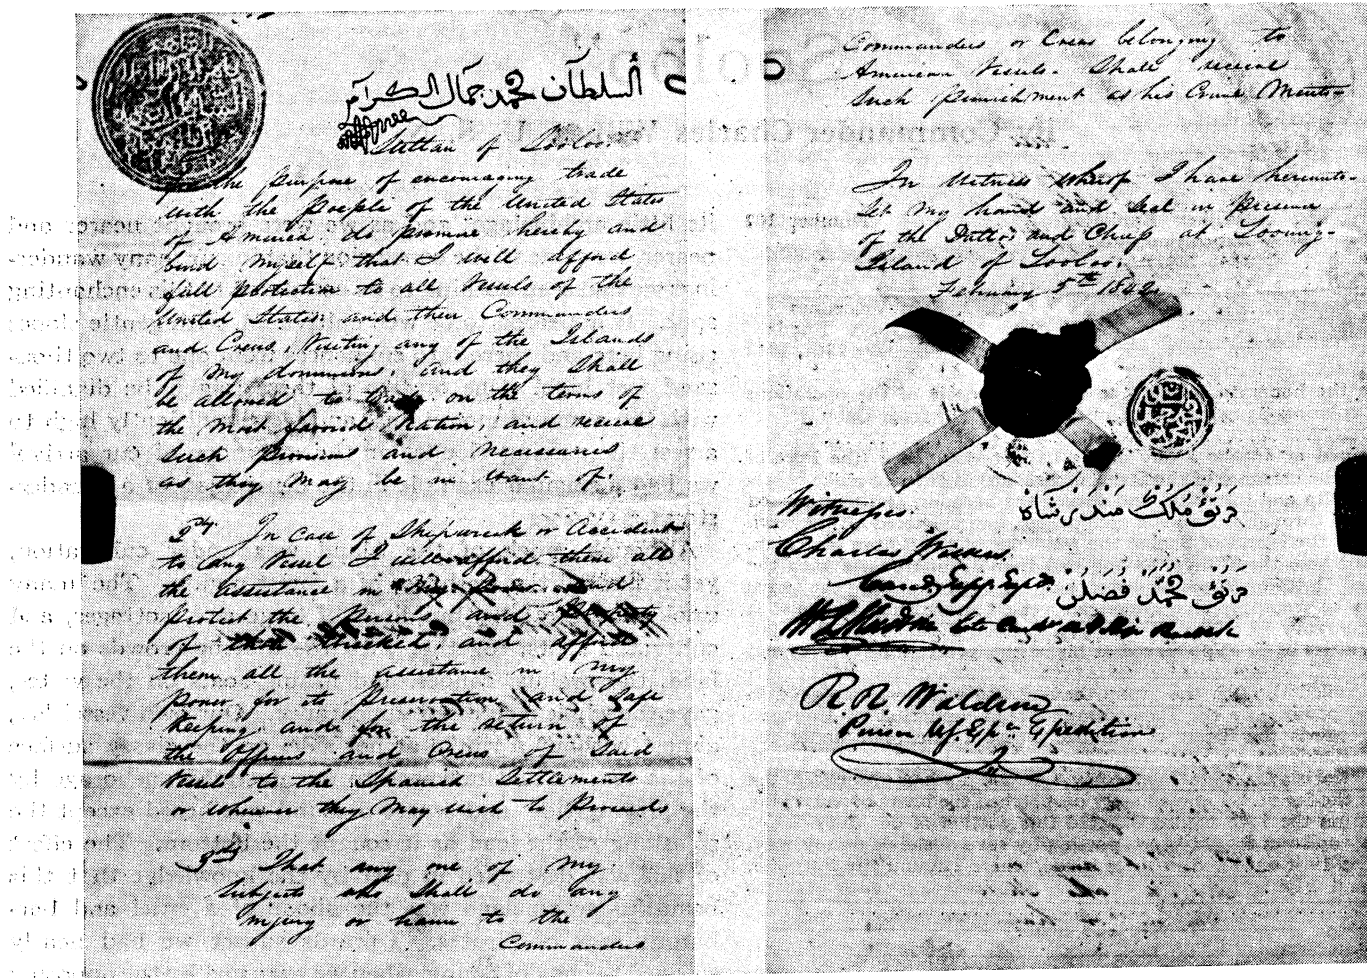 السلطان محمد جمال الكرام
Sultan of Sooloo.
for the purpose of encouraging trade
with the People of the United States
of America. do promise hereby and
bind myself that I will afford
full protection to all Vessels of the
United States. and their Commanders
and Crews. Visiting any of the Islands
of My dominions. and they Shall
be allowed to trade on the terms of
the most favored Nation. and receive
Such Provisions and Necessaries
as they May be in want of.
2dly In Case of Shipwreck or Accident
to any Vessel I will afford them all
the assistance in My Power. and
Protect the Persons and Property
of those Wrecked. and afford
them all the assistance in my
power for its Preservation and Safe
Keeping. and for the return of
the Officers and Crews of Said
Vessels to the Spanish Settlements
or wherever they May wish to Proceed
3dly That any one of My
Subjects who Shall do any
injury or harm to the
Commanders
Commanders or Crews belonging to
American Vessels. Shall receive
Such Punishment as his Crime Merits
In Witness Whereof I have hereunto
Set My hand and Seal in Presence
of the Dattos and Chiefs at Soung.
Island of Sooloo.
February 5th 1842.
Witnesses.
Charles Wilkes.
Comdg
R R Waldron
Purser U.S. Expg Expedition